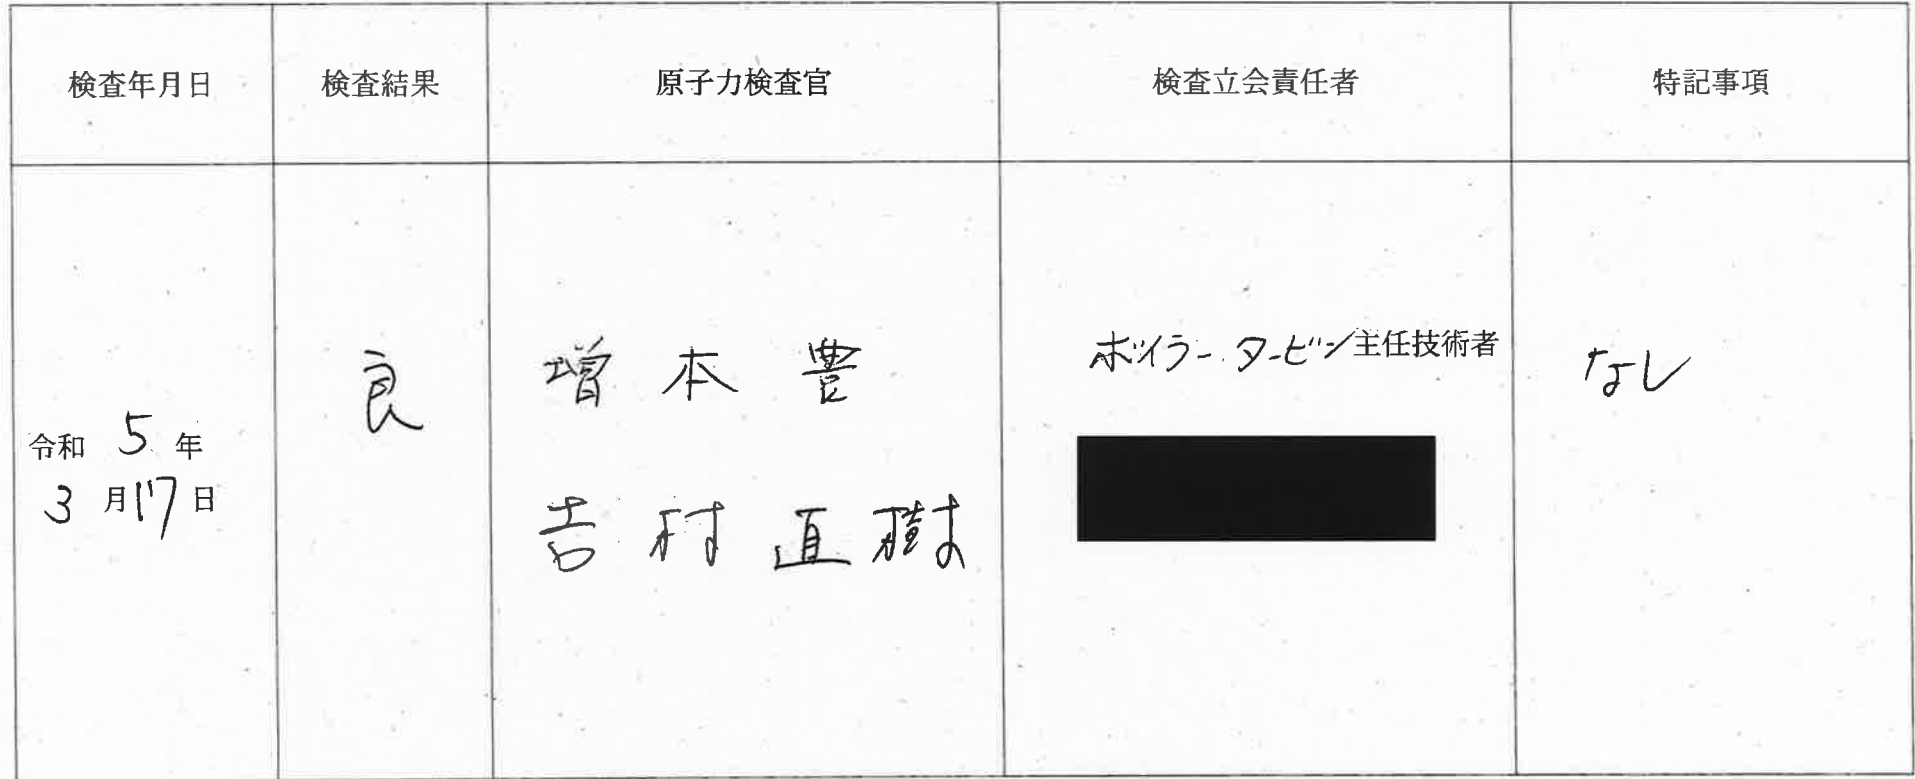 検査年月日 検査結果 原子力検査官 検査立会責任者 特記事項
令和 5 年
3 月 17 日
良
増 本 豊
吉 村 直 樹
ボイラー・タービン主任技術者
なし